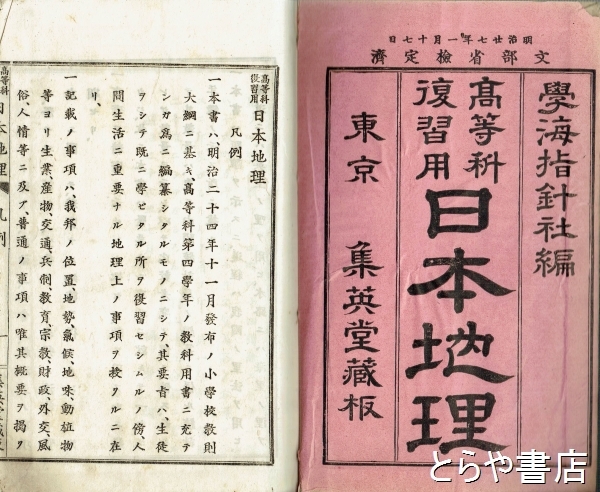 明治廿七年一月十七日
文部省檢定濟
學海指針社編
高等科
復習用
日本地理
東京 集英堂藏板
高等科
復習用
日本地理
凡例
一本書ハ、明治二十四年十一月發布ノ小學校教則
大綱ニ基キ、高等科第四學年ノ教科用書ニ充テ
ンガ爲ニ編纂シタルモノニシテ、其要旨ハ、生徒
ヲシテ既ニ學ビタル所ヲ復習セシムルノ傍、人
間生活ニ重要ナル地理上ノ事項ヲ授クルニ在
リ、
一記載ノ事項ハ、我邦ノ位置、地勢、氣候、地味、動植物
等ヨリ生業、產物、交通、兵制、教育、宗教、財政、外交、風
俗、人情等ニ及ブ、普通ノ事項ハ唯其概要ヲ揭ゲ
高等科
日本地理
凡例
一
とらや書店